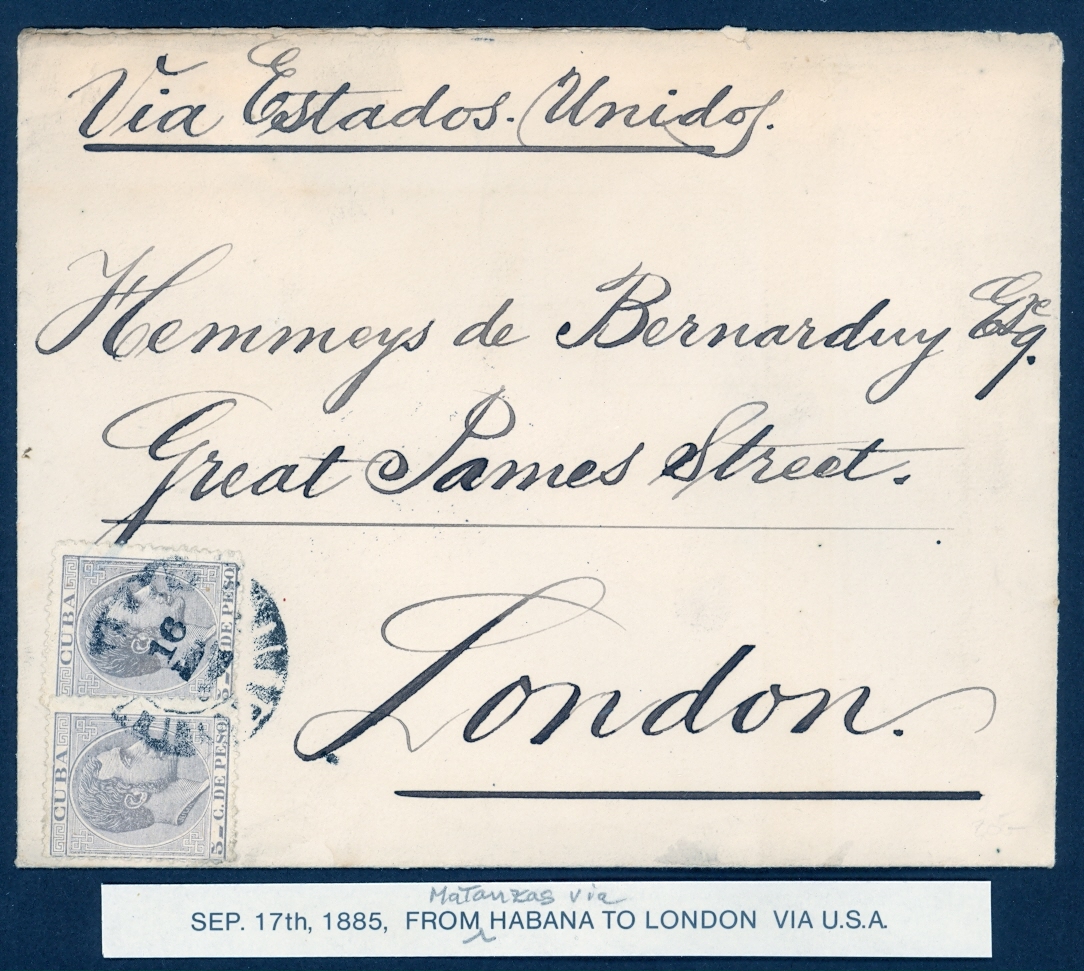 Via Estados. Unidos.
Hemmeys de Bernarduy Esqre.
Great James Street.
London.
CUBA
5 C. DE PESO
16
CUBA
5 C. DE PESO
Matanzas via
SEP. 17th, 1885, FROM HABANA TO LONDON VIA U.S.A.